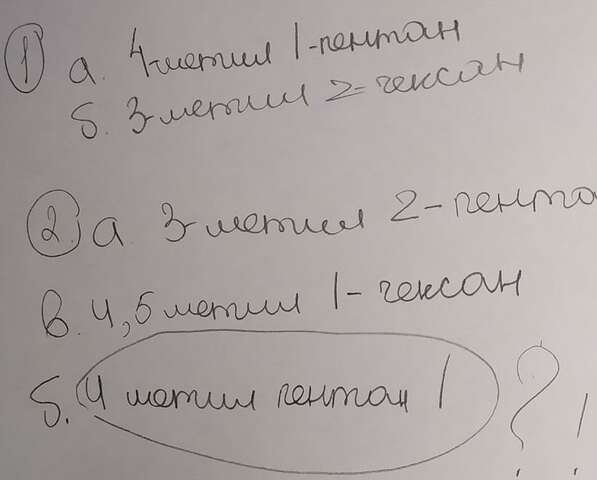 1 а. 4-метил 1-пентан
б. 3-метил 2-гексан
2. а 3-метил 2-пента
в. 4,5 метил 1-гексан
б. 4 метил пентан 1 ? !